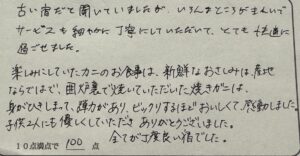 古い宿だと聞いていましたが、いろんなところがきれいで
サービスも細やかに丁寧にしていただいて、とても快適に
過ごせました。
楽しみにしていたカニのお食事は、新鮮なおさしみは産地
ならではで、囲炉裏で焼いていただいた焼きガニは、
身がひきしまって、弾力があり、ビックリするほどおいしくて、感動しました。
子供2人にも優しくしていただき ありがとうございました。
全てが満足良い宿でした。
10点満点で 100 点